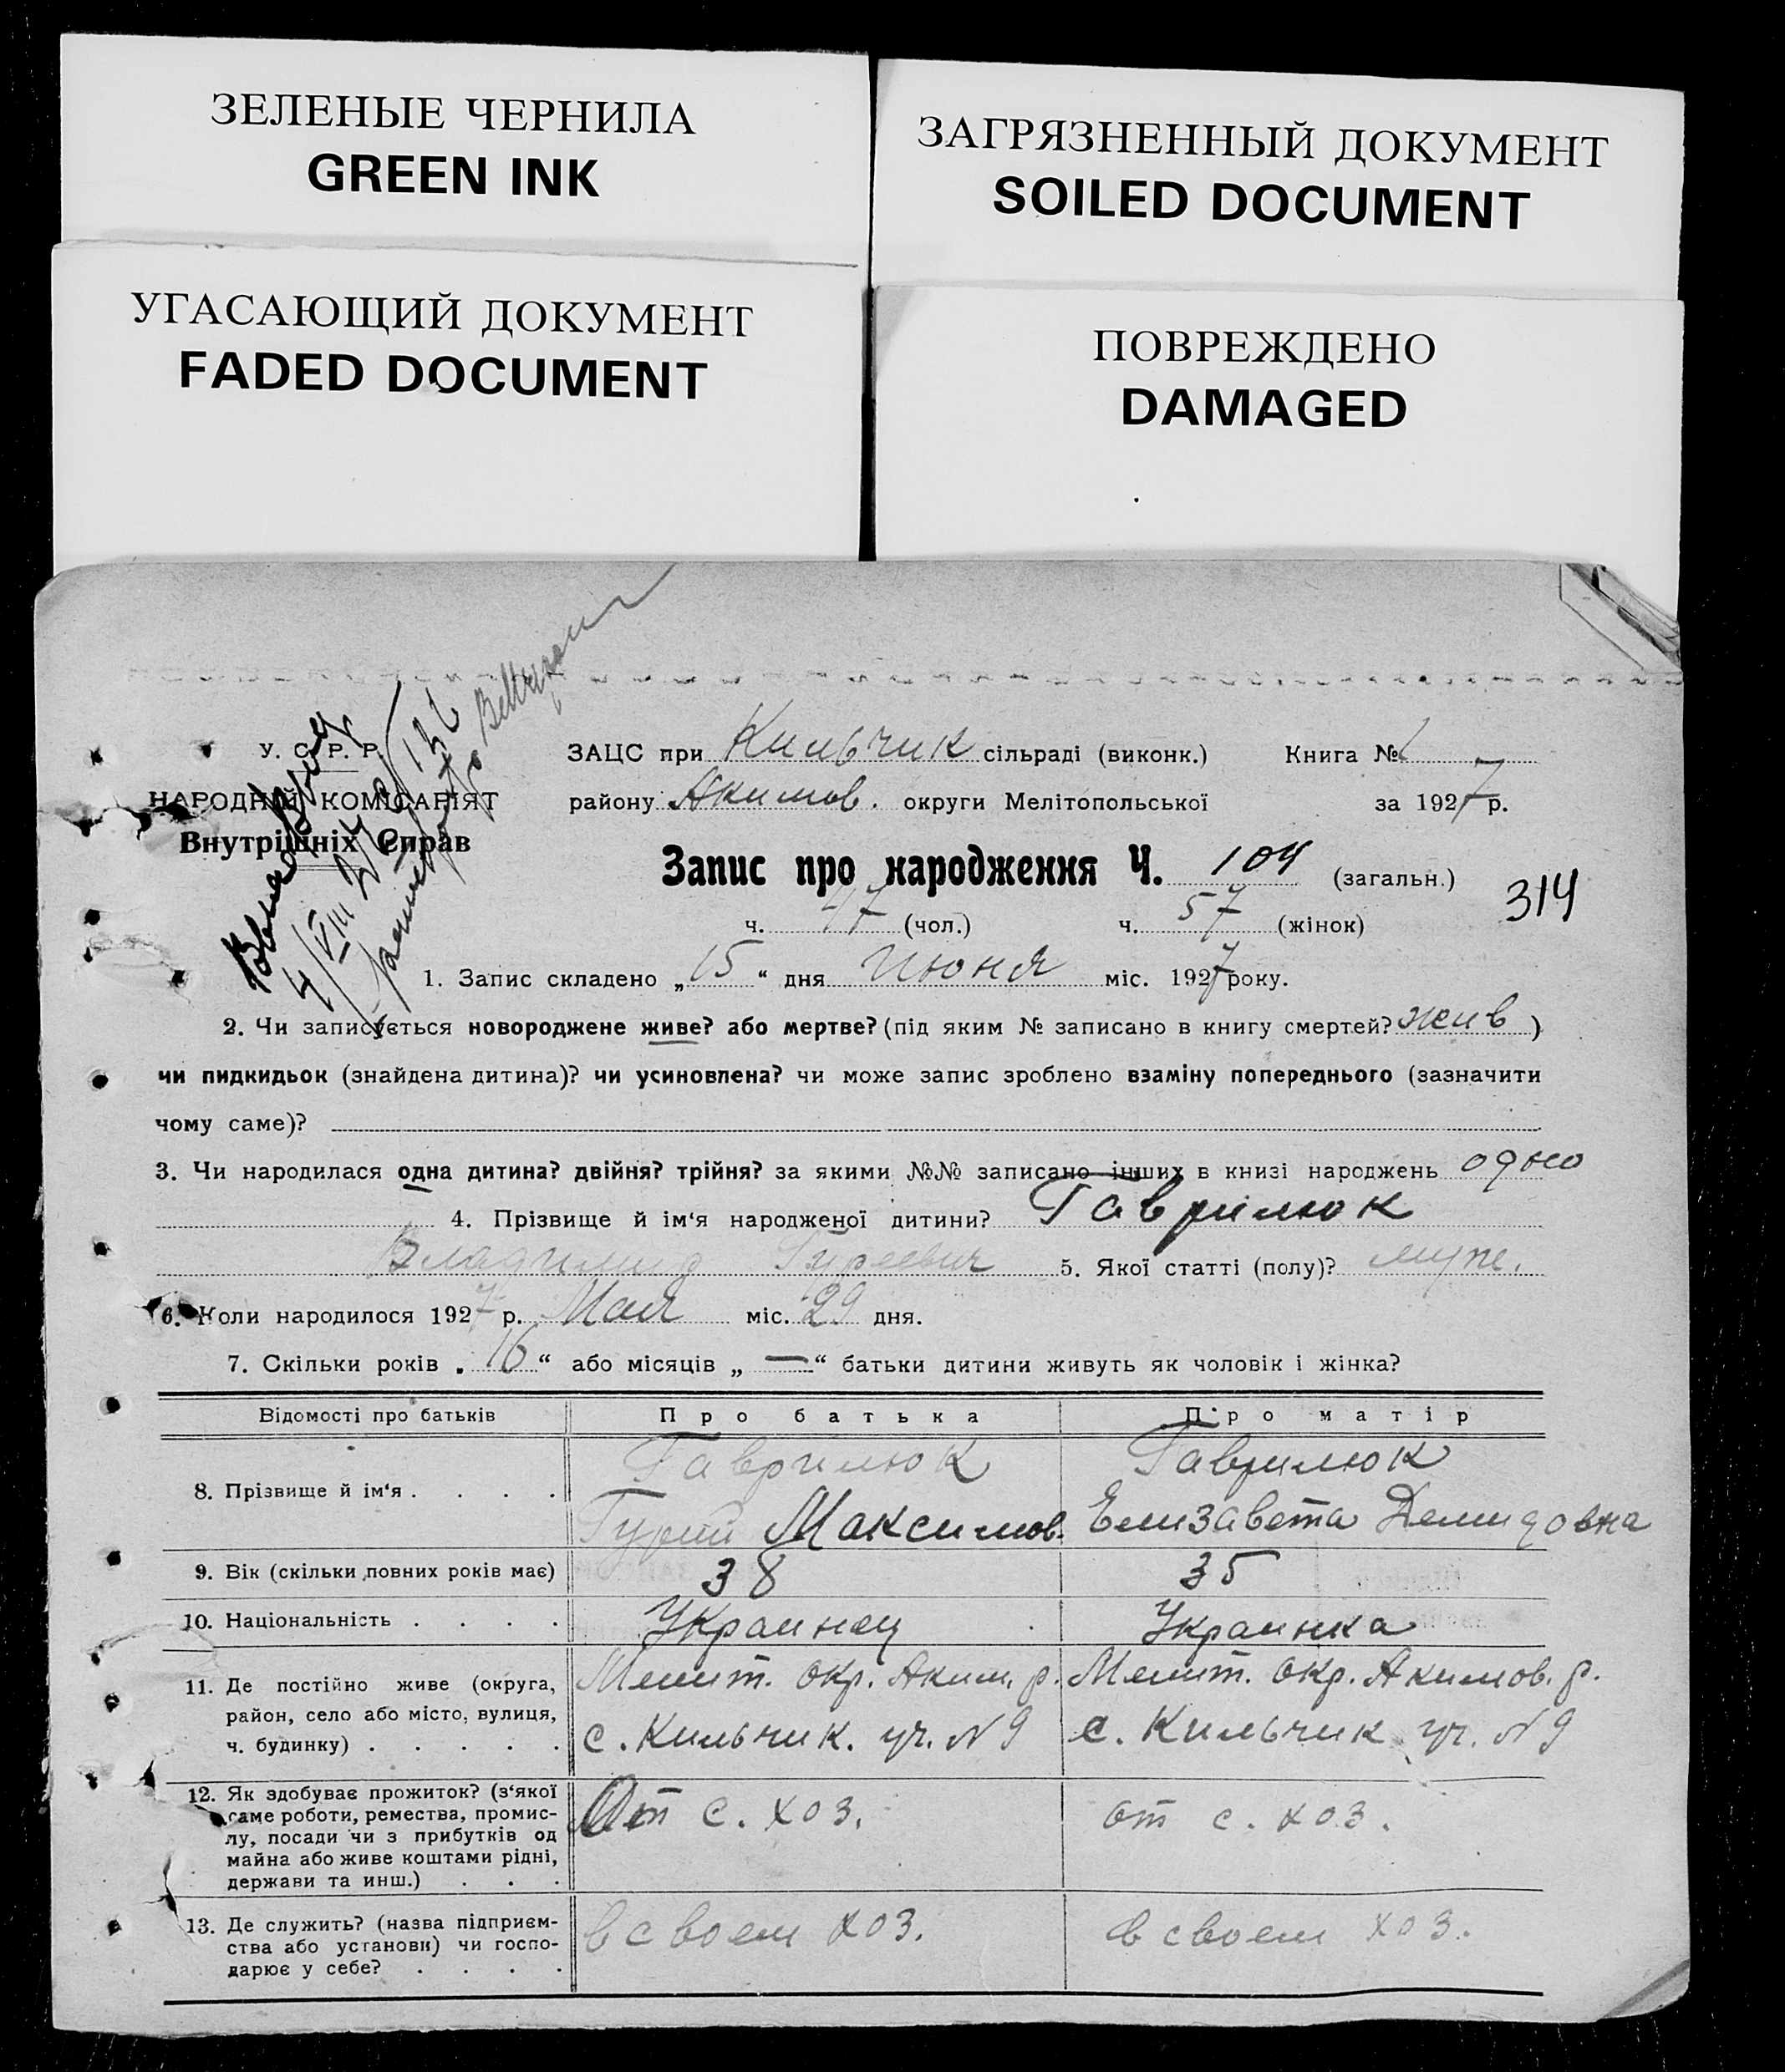 ЗЕЛЕНЫЕ ЧЕРНИЛА
GREEN INK
ЗАГРЯЗНЕННЫЙ ДОКУМЕНТ
SOILED DOCUMENT
УГАСАЮЩИЙ ДОКУМЕНТ
FADED DOCUMENT
ПОВРЕЖДЕНО
DAMAGED
У. С. Р. Р.
НАРОДНИЙ КОМІСАРІЯТ
Внутрішніх Справ
4/VIII
ЗАЦС при Кильчик сільраді (виконк.) Книга № 1
району Акимов. округи Мелітопольської за 1927 р.
Запис про народження Ч. 104 (загальн.)
314
ч. 47 (чол.) ч. 57 (жінок)
1. Запис складено „15“ дня Июня міс. 1927 року.
2. Чи записується новороджене живе? або мертве? (під яким № записано в книгу смертей? жив )
чи пидкидьок (знайдена дитина)? чи усиновлена? чи може запис зроблено взаміну попереднього (зазначити
чому саме)?
3. Чи народилася одна дитина? двійня? трійня? за якими №№ записано інших в книзі народжень одно
4. Прізвище й ім‘я народженої дитини? Гаврилюк
Владимир Гуреевич 5. Якої статті (полу)? муж.
6. Коли народилося 1927 р. Мая міс. 29 дня.
7. Скільки років „16“ або місяців „—“ батьки дитини живуть як чоловік і жінка?
Відомості про батьків Про батька Про матір
8. Прізвище й ім‘я . . . . Гаврилюк Гурий Максимов. Гаврилюк Елизавета Демидовна
9. Вік (скільки повних років має) 38 35
10. Національність . . . . Украинец Украинка
11. Де постійно живе (округа, Мелит. окр. Аким. р. Мелит. окр. Акимов. р.
район, село або місто, вулиця,
ч. будинку) . . . . . с. Кильчик. уч. N 9 с. Кильчик уч. N 9
12. Як здобуває прожиток? (з‘якої
саме роботи, ремества, промис- От с. хоз. от с. хоз.
лу, посади чи з прибутків од
майна або живе коштами рідні,
держави та инш.) . . .
13. Де служить? (назва підприєм- в своем хоз. в своем хоз.
ства або установи) чи госпо-
дарює у себе? . . . .